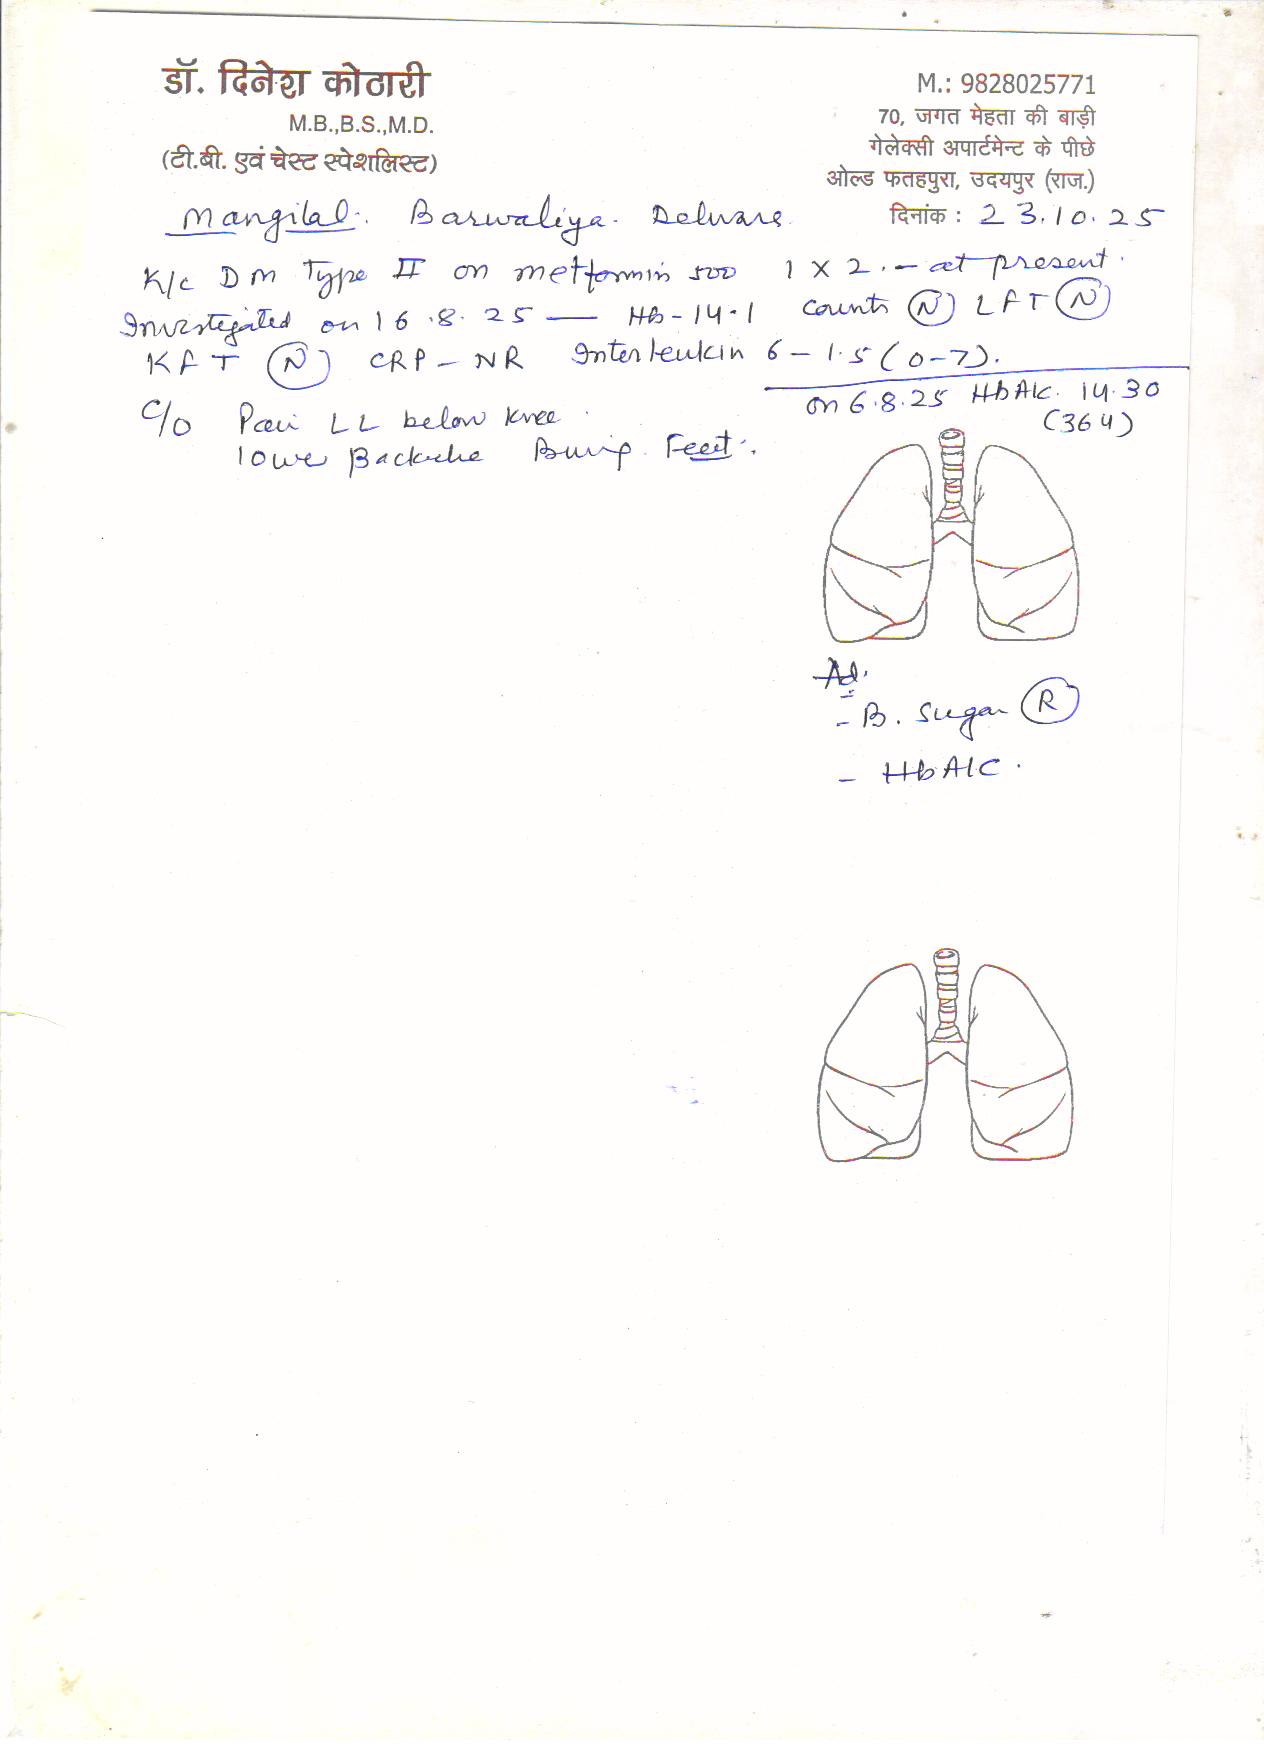 डॉ. दिनेश कोठारी
M.B.,B.S.,M.D.
(टी.बी. एवं चेस्ट स्पेशलिस्ट)
M.: 9828025771
70, जगत मेहता की बाड़ी
गेलेक्सी अपार्टमेन्ट के पीछे
ओल्ड फतहपुरा, उदयपुर (राज.)
दिनांक : 23.10.25
Mangilal. Barwaliya. Delware
K/c DM Type II on metformin 500 1 X 2. - at present.
Investigated on 16.8.25 — Hb-14.1 Counts (N) LFT (N)
KFT (N) CRP - NR Interleukin 6 - 1.5 (0-7).
on 6.8.25 HbA1c. 14.30
(364)
C/O Pain LL below knee.
lower Backache Burning Feet.
Ad.
- B. Sugar (R)
- HbA1C.